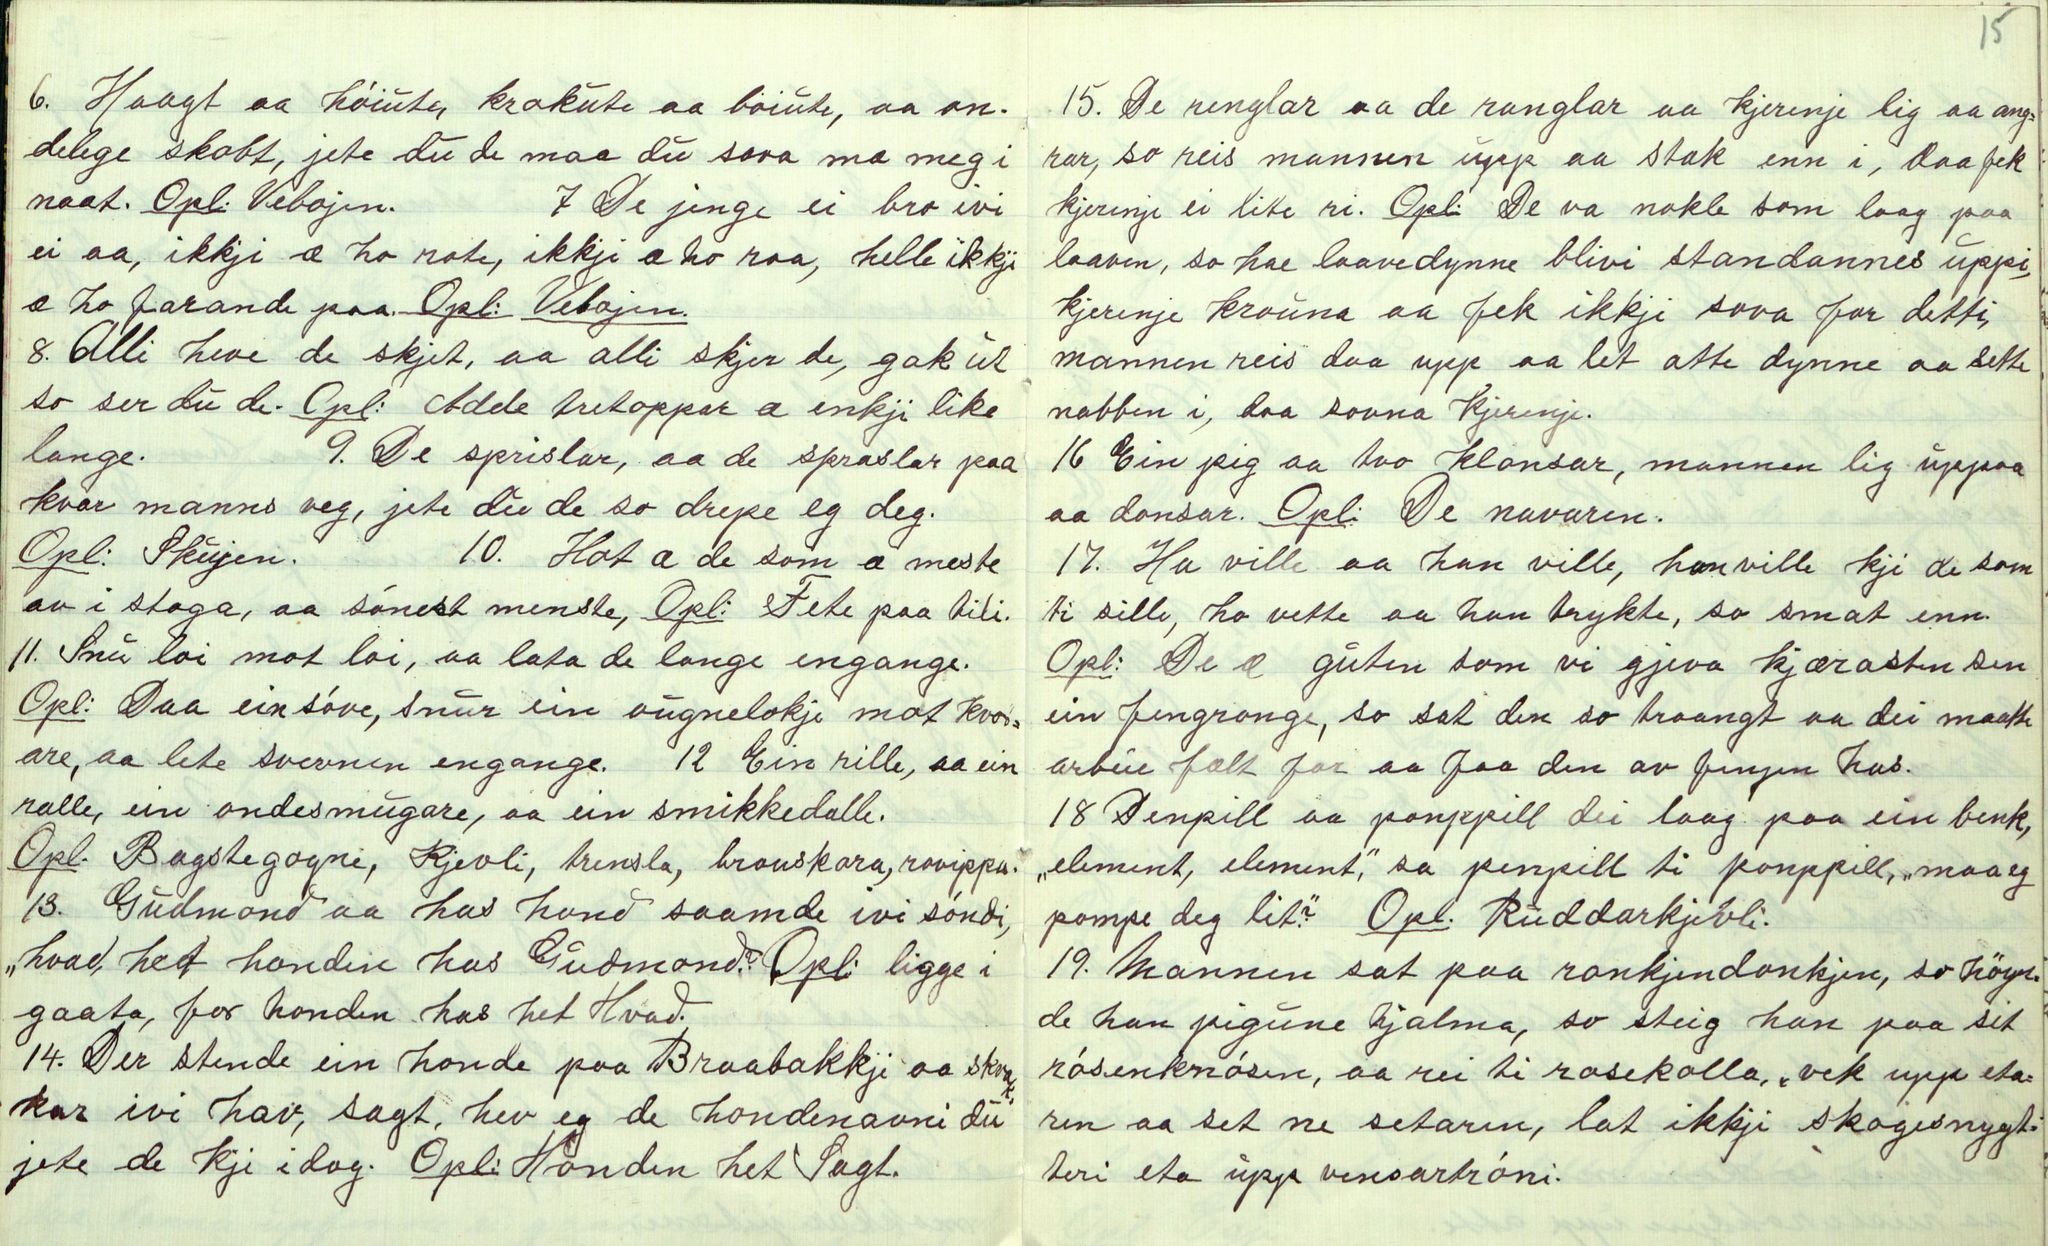 6. Haagt aa hóiute, krakute aa bóiute, aa on-
delege skabt, jete du de maa du sova mæ meg i
naat. Opl: Vebojen. 7 De jenge ei bro ivi
ei aa, ikkji æ ho rote, ikkji æ ho raa, helle ikkji
æ ho farande paa. Opl: Vebojen.
8. Alli heve de skjet, aa alli skjer de, gak út
so ser du de. Opl: Adde tretoppar æ enkji like
lange. 9. De sprislar, aa de spraslar paa
kvar manns veg, jete du de so drepe eg deg.
Opl: Skujen. 10. Hot æ de som æ meste
av i stoga, aa sónest menste, Opl: Fete paa tili.
11. Snu loi mot loi, aa lata de lange engange.
Opl: Daa ein sóve, snur ein augnelokje mot kvor-
are, aa lete svevnen engange. 12 Ein rille, aa ein
ralle, ein andesmugare, aa ein smikkedalle.
Opl. Bagstegogni, Kjevli, trensla, trouskara, rovippa.
13. Gudmond aa has hond saamde ivi sóndi,
„hvad, het honden has Gudmond?" Opl: ligge i
gaata, for honden has het Hvad.
14. Der stende ein honde paa Braabakkji aa skvak-
kar ivi hav, sagt, hev eg de hondenavni du
jete de kji i dag. Opl: Honden het Sagt.
15
15. De renglar aa de ranglar aa kjerenje lig aa ang-
rar, so reis mannen upp aa stak enn i, daa fek
kjerenje ei lite ri. Opl: De va nokle som laag paa
laaven, so hae laavedynne blivi standannes uppi,
kjerenje krouna aa fek ikkji sova for detti,
mannen reis daa upp aa let atte dynne aa sette
nabben i, daa sovna kjerenje.
16 Ein pig aa tvo klansar, mannen lig uppaa
aa dansar. Opl: De navaren.
17. Ha ville aa han ville, han ville kji de som
ti sille, ho vette aa han trykte, so smat enn.
Opl: De æ guten som vi gjeva kjærasten sen
ein fengrange, so sat den so traangt aa dei maatte
arbeie fælt for aa faa den av fenjen has.
18 Denpill aa panppill dei laag paa ein benk,
„element, element", sa penpill ti panppill, „maa eg
pampe deg lit"? Opl. Ruddarkjevli.
19. Mannen sat paa rankjendankjen, so höyr-
de han pigune hjalma, so steig han paa sit
rósenknósen, aa rei ti rosekolla, „vek upp eta-
ren aa set ne setaren, lat ikkji skogesnygt-
teri eta upp vensartróni.